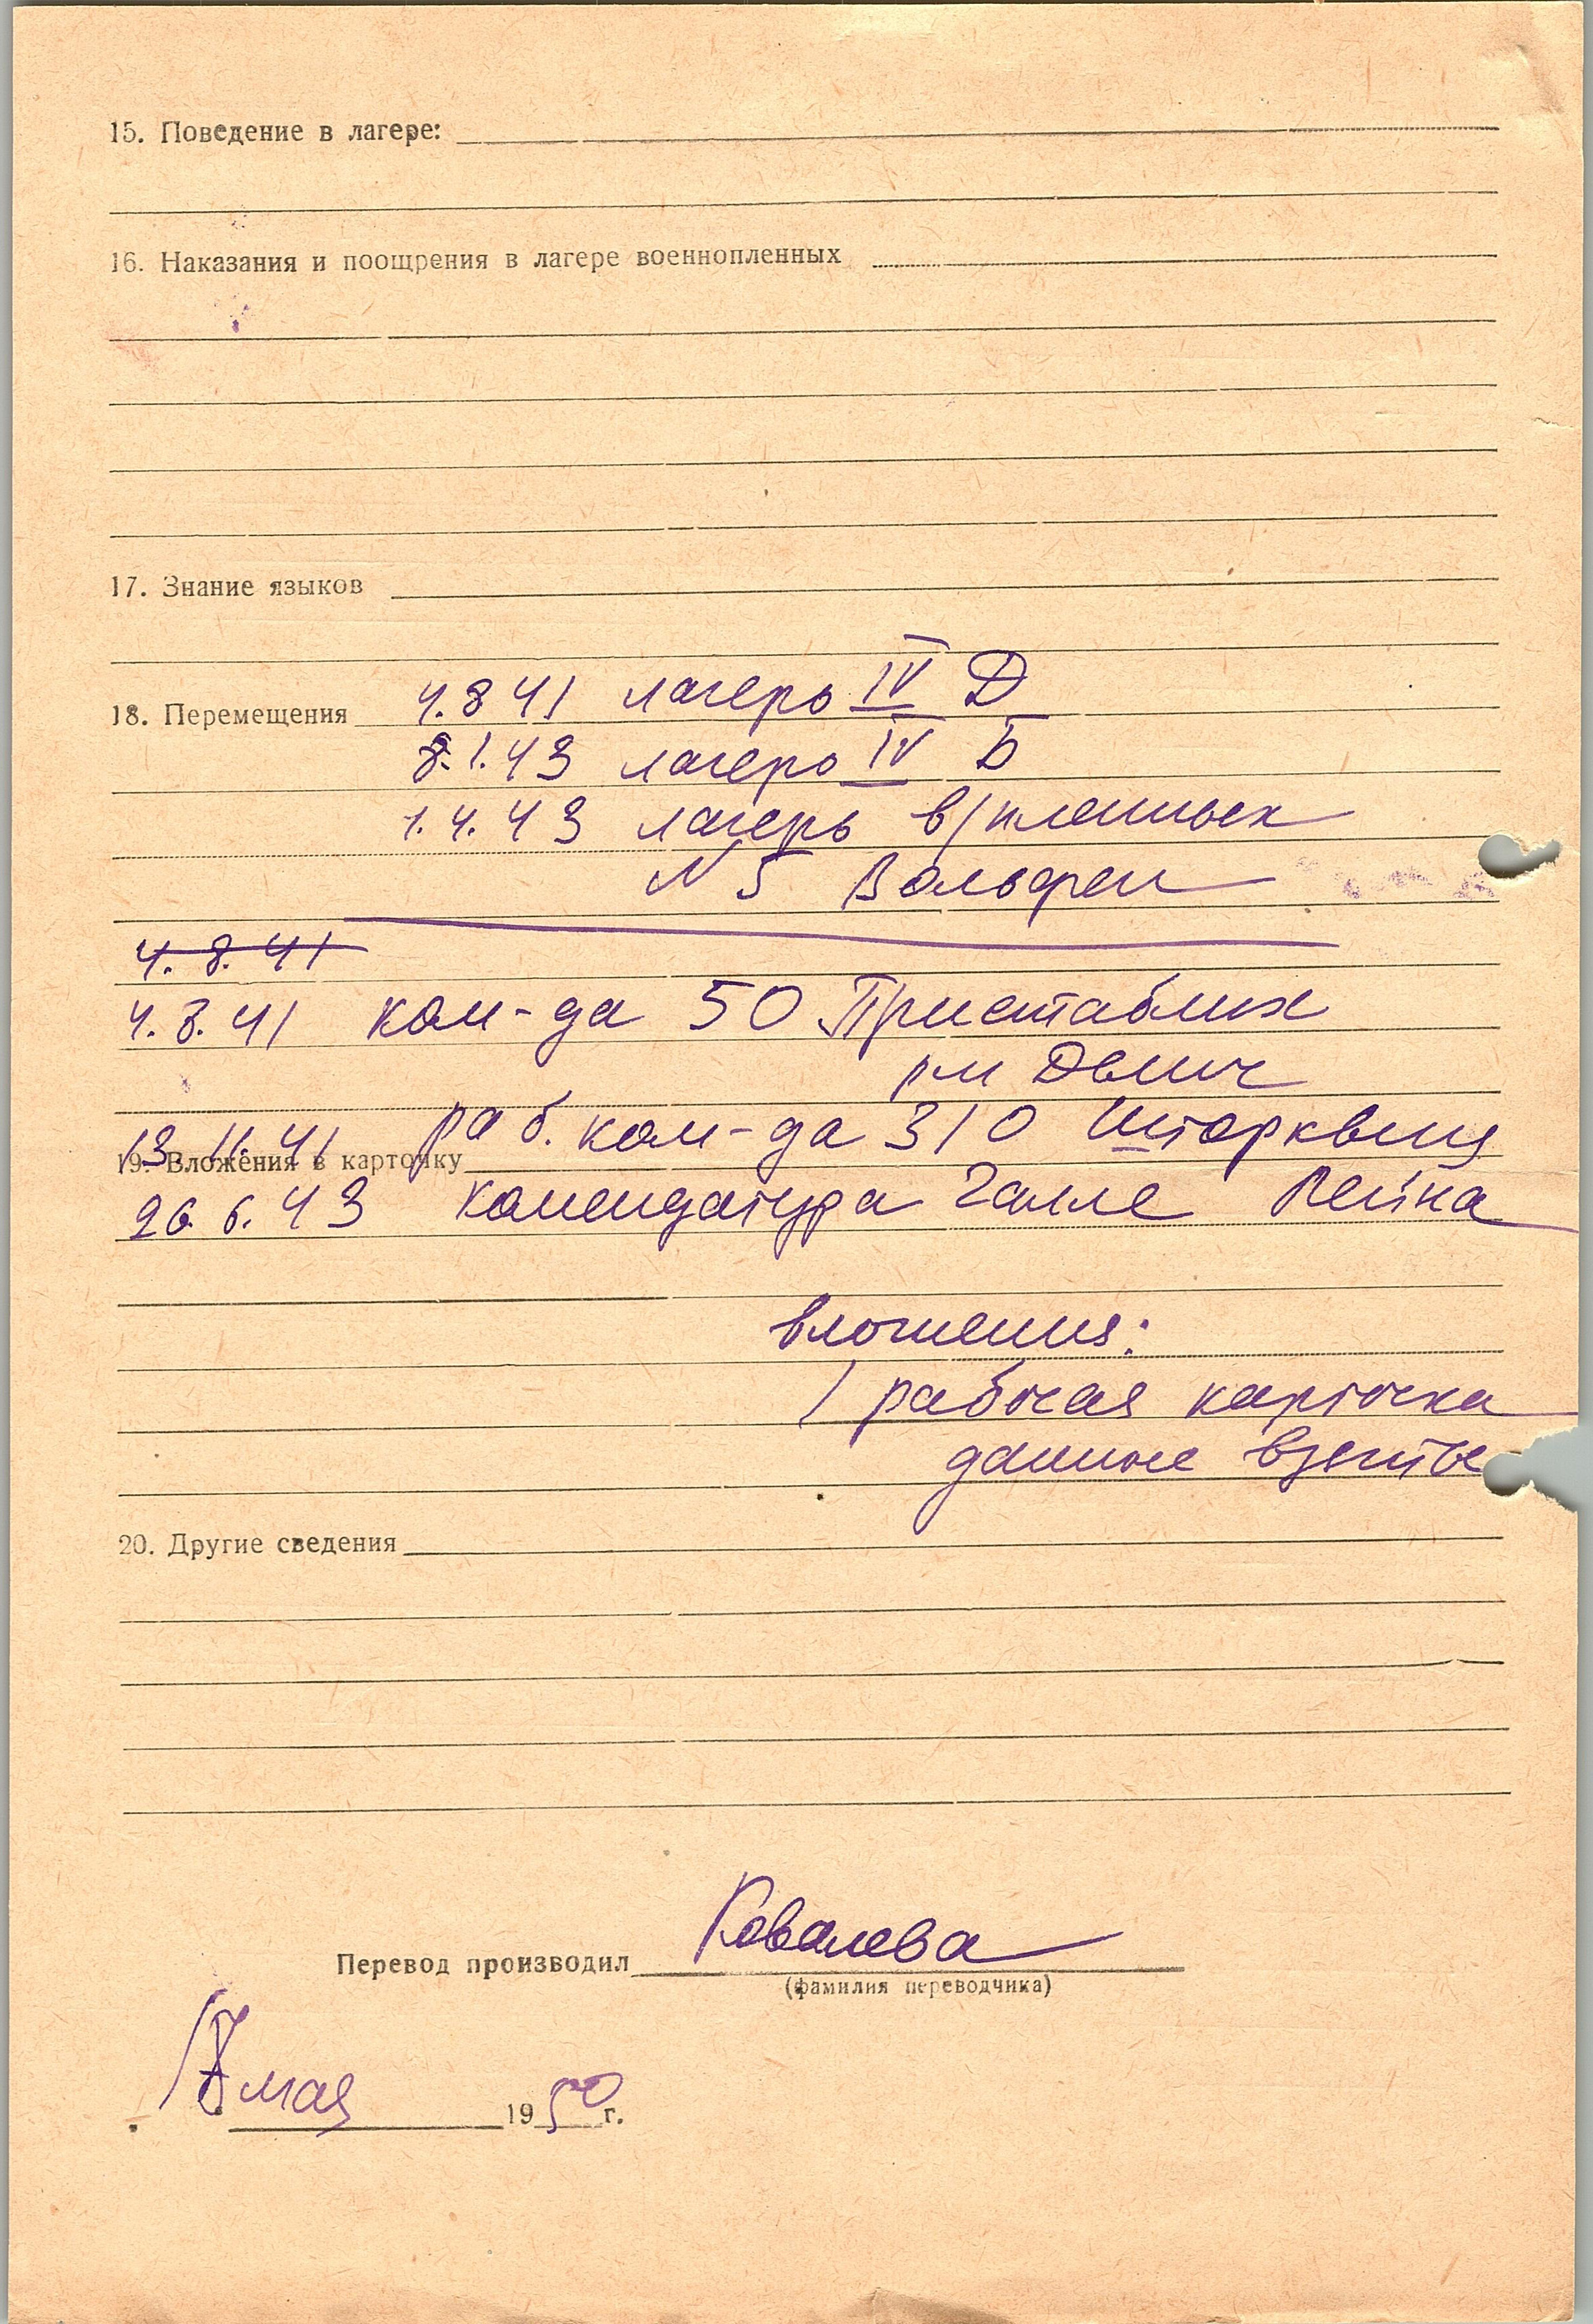 15. Поведение в лагере:
16. Наказания и поощрения в лагере военнопленных
17. Знание языков
18. Перемещения 4.8 41 лагерь IV Д
8.1.43 лагерь IV Б
1.4.43 лагерь в/пленных
N 5 Вольфен
4.8.41
4.8.41 ком-да 50 Пристаблих
13.11.41 раб. ком-да 310 Шторквиц
19. Вложения в карточку
26.6.43 комендатура Галле
вложения:
1 рабочая карточка
данные взяты
20. Другие сведения
Перевод производил Ковалева
(фамилия переводчика)
мая 1950 г.